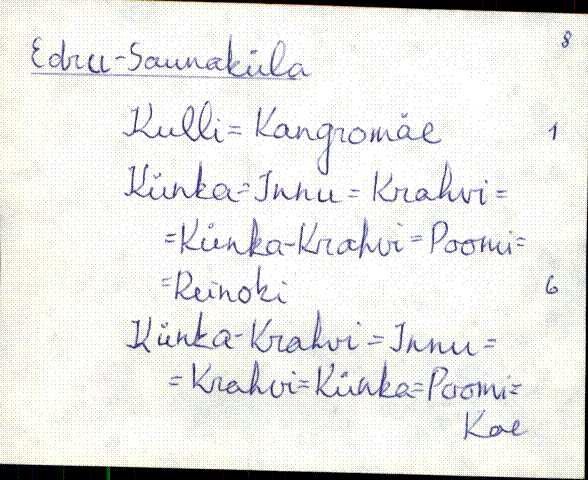 8
Edru-Saunaküla
Kulli = Kangromäe 1
Künka = Innu = Krahvi =
= Künka-Krahvi = Poomi =
= Reinoki 6
Künka-Krahvi = Innu =
= Krahvi = Künka = Poomi =
Kae